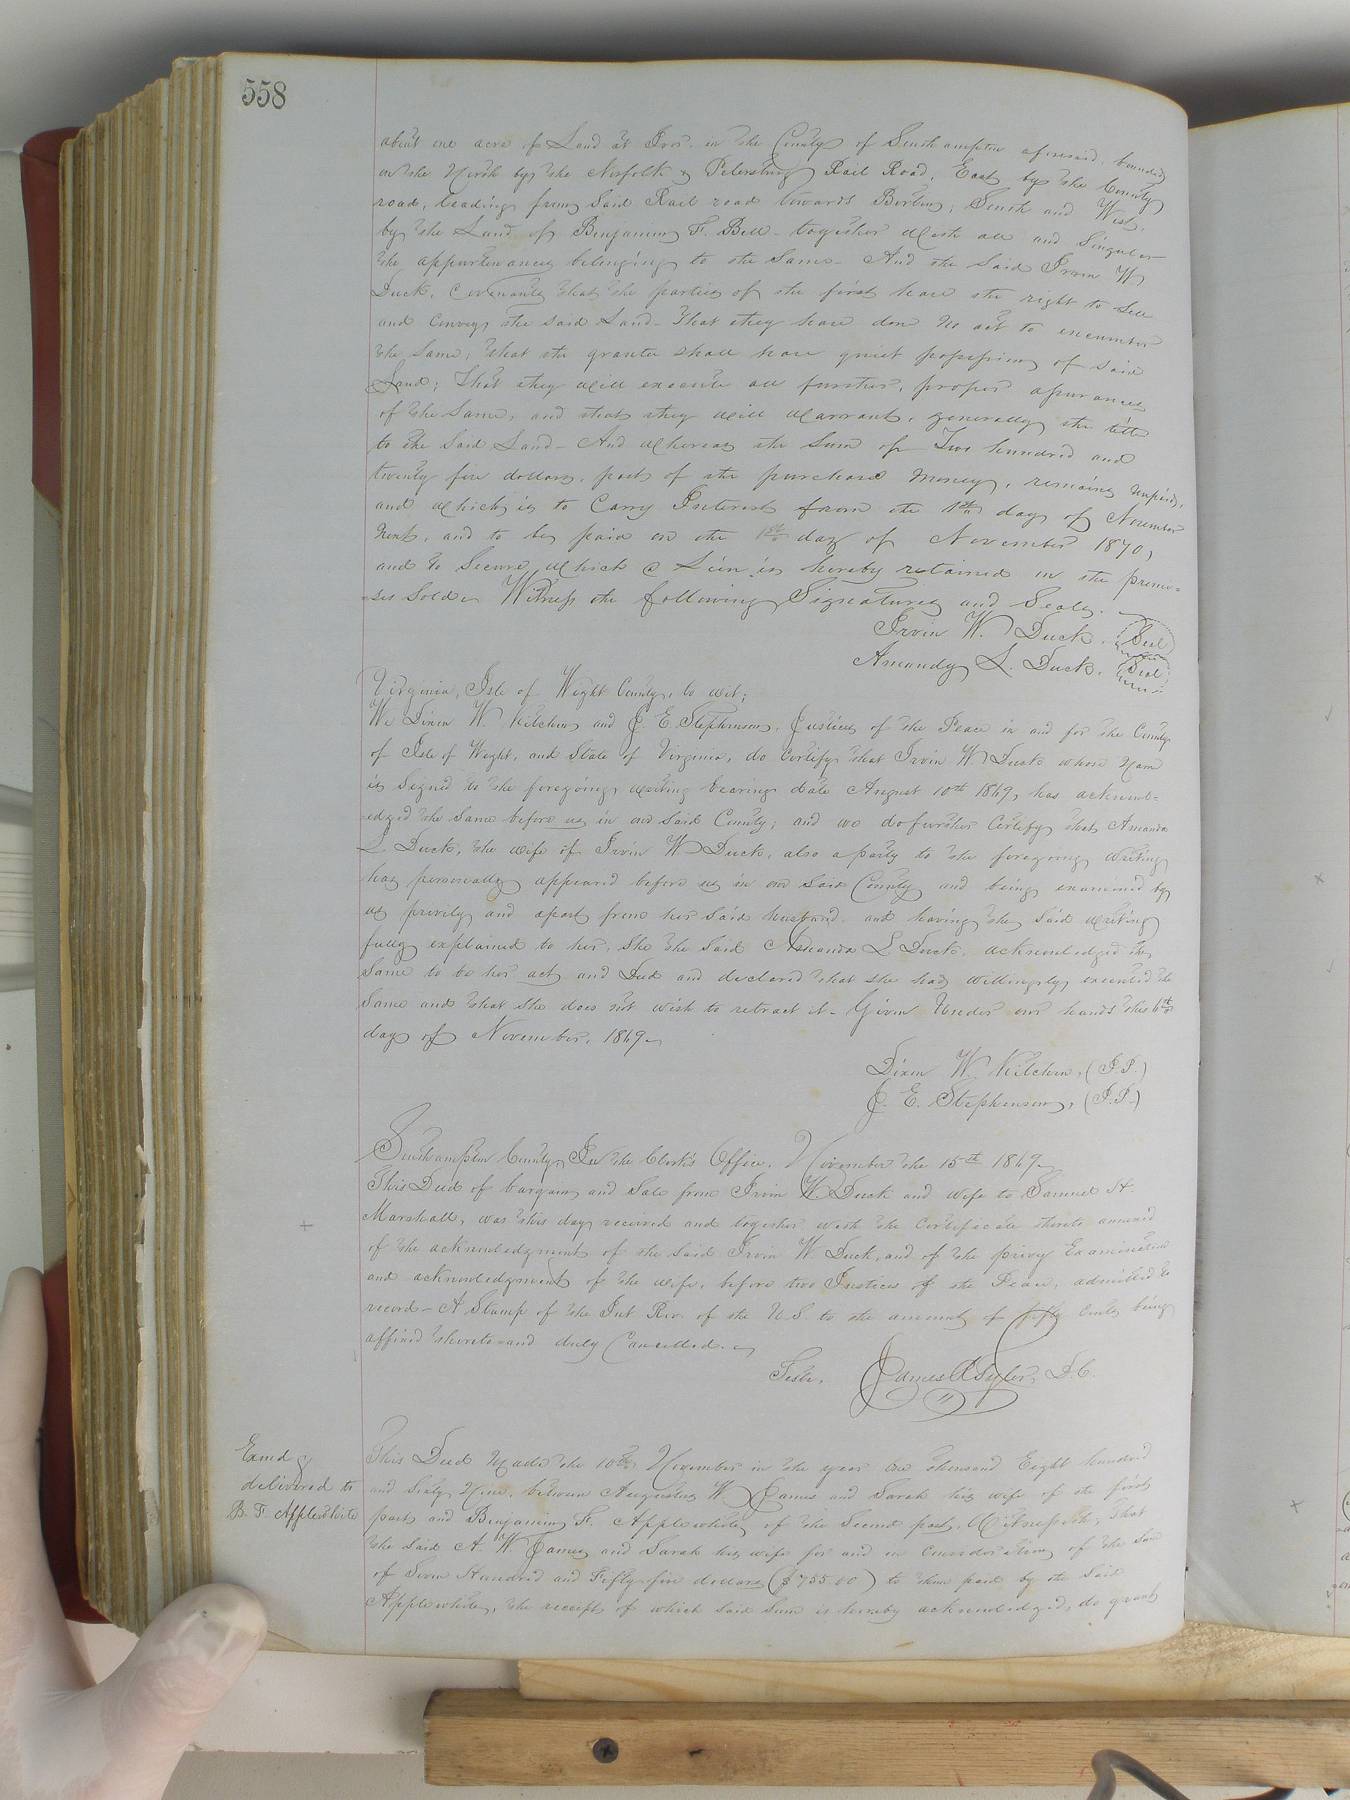 558
about one acre of Land at Ivor. in the County of Southampton aforesaid, bounded
on the North by the Norfolk & Petersburg Rail Road, East by the County
road, leading from Said Rail road towards Berlin; South and West,
by the Land of Benjamin F. Bell - together With all and Singular
the appurtenances belonging to the Same - And the Said Irvin W
Duck, Covenants that the parties of the first have the right to Sell
and Convey the said Land - That they have don no act to encumber
the Same; that the grantee shall have quiet possession of said
Land; That they Will execute all further, proper assurances
of the Same, and that they Will Warrant, generally the title
to the Said Land - And Whereas the Sum of Two hundred and
twenty five dollars, part of the purchase Money, remains unpaid,
and Which is to Carry Interest from the 1st day of November
Next, and to be paid on the 1st day of November 1870,
and to Secure Which a Lien is hereby retained in the premi=
=ses Sold Witness the following Signatures and Seals.
Irvin W. Duck. Seal
Amanda L. Duck. Seal
Virginia, Isle of Wight County, to wit;
We Dixon W. Kitchen and J. E. Stephenson, Justices of the Peace in and for the County
of Isle of Wight, and State of Virginia, do Certify that Irvin W Duck whose Name
is Signed to the foregoing writing bearing date August 10th 1869, has acknowl=
=edged the Same before us in our Said County; and we do further Certify that Amanda
L Duck, the wife of Irvin W Duck, also a party to the foregoing writing
has personally appeared before us in our Said County and being examined by
us privily and apart from her Said husband. and having the Said writing
fully explained to her, She the Said Amanda L Duck, acknowledged the
Same to be her act and Deed and declared that she had willingly executed the
Same and that She does not wish to retract it - Given Under our hands this 6th
day of November, 1869
Dixon W. Kitchen, (J.P.)
J. E. Stephenson, (J.P.)
Southampton County, In the Clerk's Office, November the 15th 1869
This Deed of bargain and Sale from Irvin W Duck and wife to Samuel H
Marshall, was this day received and together with the Certificate thereto annexed
of the acknowledgment of the Said Irvin W Duck, and of the privy Examination
and acknowledgment of the wife, before two Justices of the Peace, admitted to
record - A Stamp of the Int Rev. of the U.S. to the amount of fifty Cents being
affixed thereto and duly Cancelled.
Teste, James A Tyler, D.C.
Examd &
delivered to
B. F. Applewhite
This Deed Made the 10th November in the year One thousand Eight hundred
and Sixty Nine, between Augustus W. James and Sarah his wife of the first
part and Benjamin F. Applewhite, of the Second part, Witnesseth; That
the Said A. W James and Sarah his wife for and in Consideration of the Sum
of Seven Hundred and Fifty-five dollars ($755.00) to them paid by the Said
Applewhite, the receipt of which Said Sum is hereby acknowledged, do grant